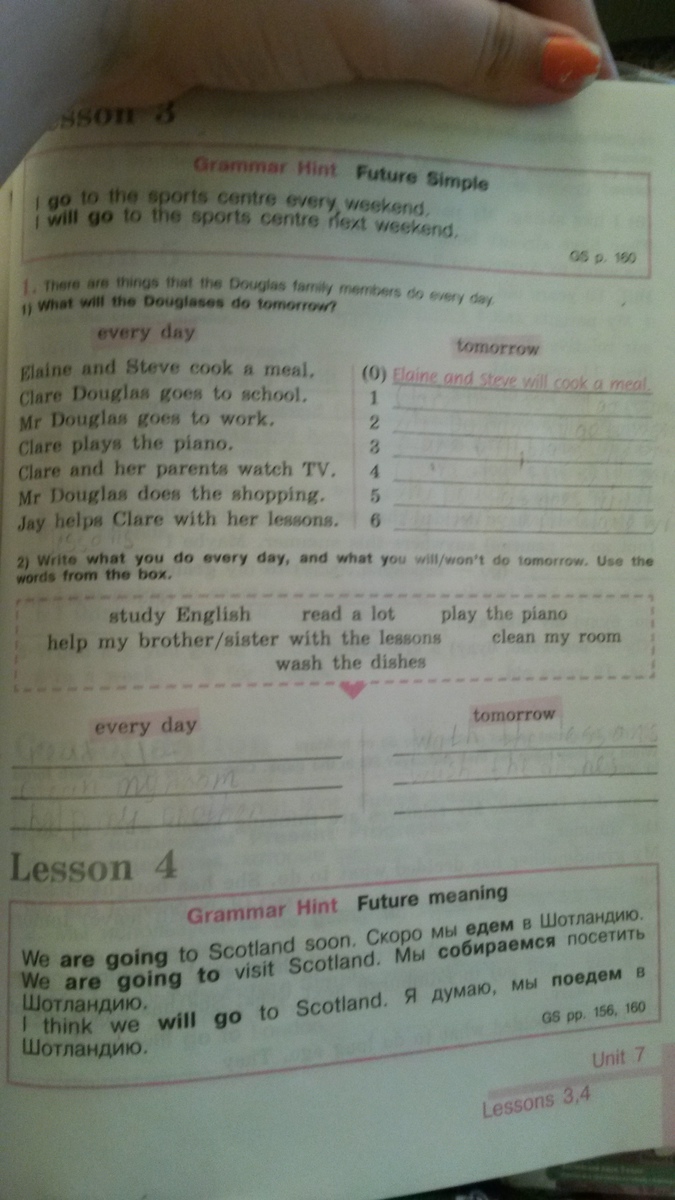 Lesson 3
Grammar Hint Future Simple
I go to the sports centre every weekend.
I will go to the sports centre next weekend.
GS p. 160
1. There are things that the Douglas family members do every day.
1) What will the Douglases do tomorrow?
every day
tomorrow
Elaine and Steve cook a meal.
(0) Elaine and Steve will cook a meal.
Clare Douglas goes to school.
1
Mr Douglas goes to work.
2
Clare plays the piano.
3
Clare and her parents watch TV.
4
Mr Douglas does the shopping.
5
Jay helps Clare with her lessons.
6
2) Write what you do every day, and what you will/won't do tomorrow. Use the
words from the box.
study English read a lot play the piano
help my brother/sister with the lessons clean my room
wash the dishes
every day
tomorrow
Lesson 4
Grammar Hint Future meaning
We are going to Scotland soon. Скоро мы едем в Шотландию.
We are going to visit Scotland. Мы собираемся посетить
Шотландию.
I think we will go to Scotland. Я думаю, мы поедем в
Шотландию.
GS pp. 156, 160
Unit 7
Lessons 3,4